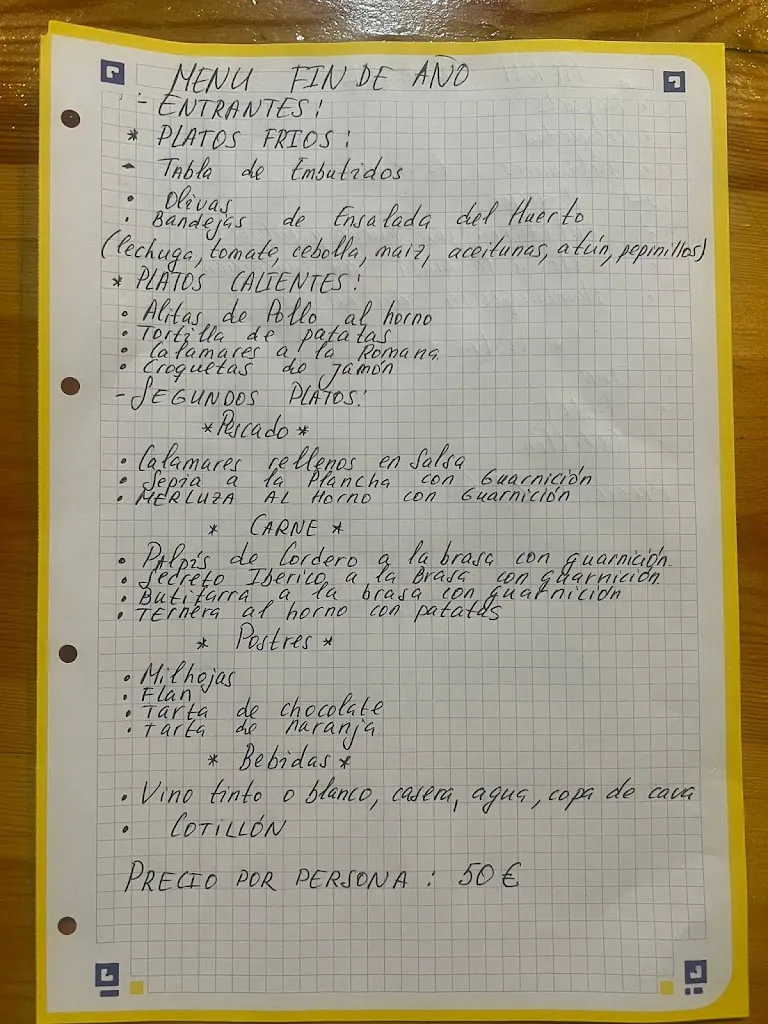 MENU FIN DE AÑO
- ENTRANTES:
* PLATOS FRIOS:
- Tabla de Embutidos
• Olivas
• Bandejas de Ensalada del Huerto
(lechuga, tomate, cebolla, maiz, aceitunas, atún, pepinillos)
* PLATOS CALIENTES:
• Alitas de Pollo al horno
• Tortilla de patatas
• Calamares a la Romana
• Croquetas de jamón
- SEGUNDOS PLATOS:
* Pescado *
• Calamares rellenos en Salsa
• Sepia a la Plancha con Guarnición
• MERLUZA AL Horno con Guarnición
* CARNE *
• Palpis de Cordero a la brasa con guarnición
• Secreto Iberico a la Brasa con guarnición
• Butifarra a la brasa con guarnición
• TERnera al horno con patatas
* Postres *
• Milhojas
• Flan
• Tarta de chocolate
• Tarta de naranja
* Bebidas *
• Vino tinto o blanco, casera, agua, copa de cava
• COTILLÓN
PRECIO POR PERSONA : 50 €